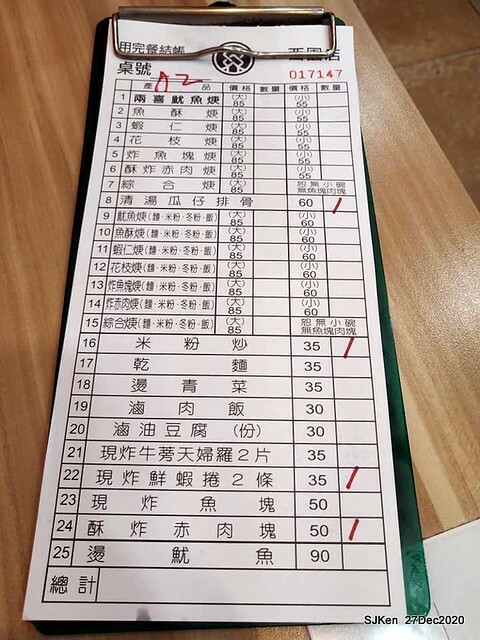 用完餐結帳 西園店
桌號 A2 017147
產品 價格 數量 價格 數量
1 兩喜魷魚焿 (大)85 (小)55
2 魚酥焿 (大)85 (小)55
3 蝦仁焿 (大)85 (小)55
4 花枝焿 (大)85 (小)55
5 炸魚塊焿 (大)85 (小)55
6 酥炸赤肉焿 (大)85 (小)55
7 綜合焿 (大)85 恕無小碗 無魚塊肉塊
8 清湯瓜仔排骨 60 /
9 魷魚焿(麵·米粉·冬粉·飯) (大)85 (小)60
10 魚酥焿(麵·米粉·冬粉·飯) (大)85 (小)60
11 蝦仁焿(麵·米粉·冬粉·飯) (大)85 (小)60
12 花枝焿(麵·米粉·冬粉·飯) (大)85 (小)60
13 炸魚塊焿(麵·米粉·冬粉·飯) (大)85 (小)60
14 炸赤肉焿(麵·米粉·冬粉·飯) (大)85 (小)60
15 綜合焿(麵·米粉·冬粉·飯) (大)85 恕無小碗 無魚塊肉塊
16 米粉炒 35 /
17 乾麵 35
18 燙青菜 35
19 滷肉飯 30
20 滷油豆腐(份) 30
21 現炸牛蒡天婦羅2片 35
22 現炸鮮蝦捲2條 35 /
23 現炸魚塊 50
24 酥炸赤肉塊 50 /
25 燙魷魚 90
總計
SJKen 27Dec2020